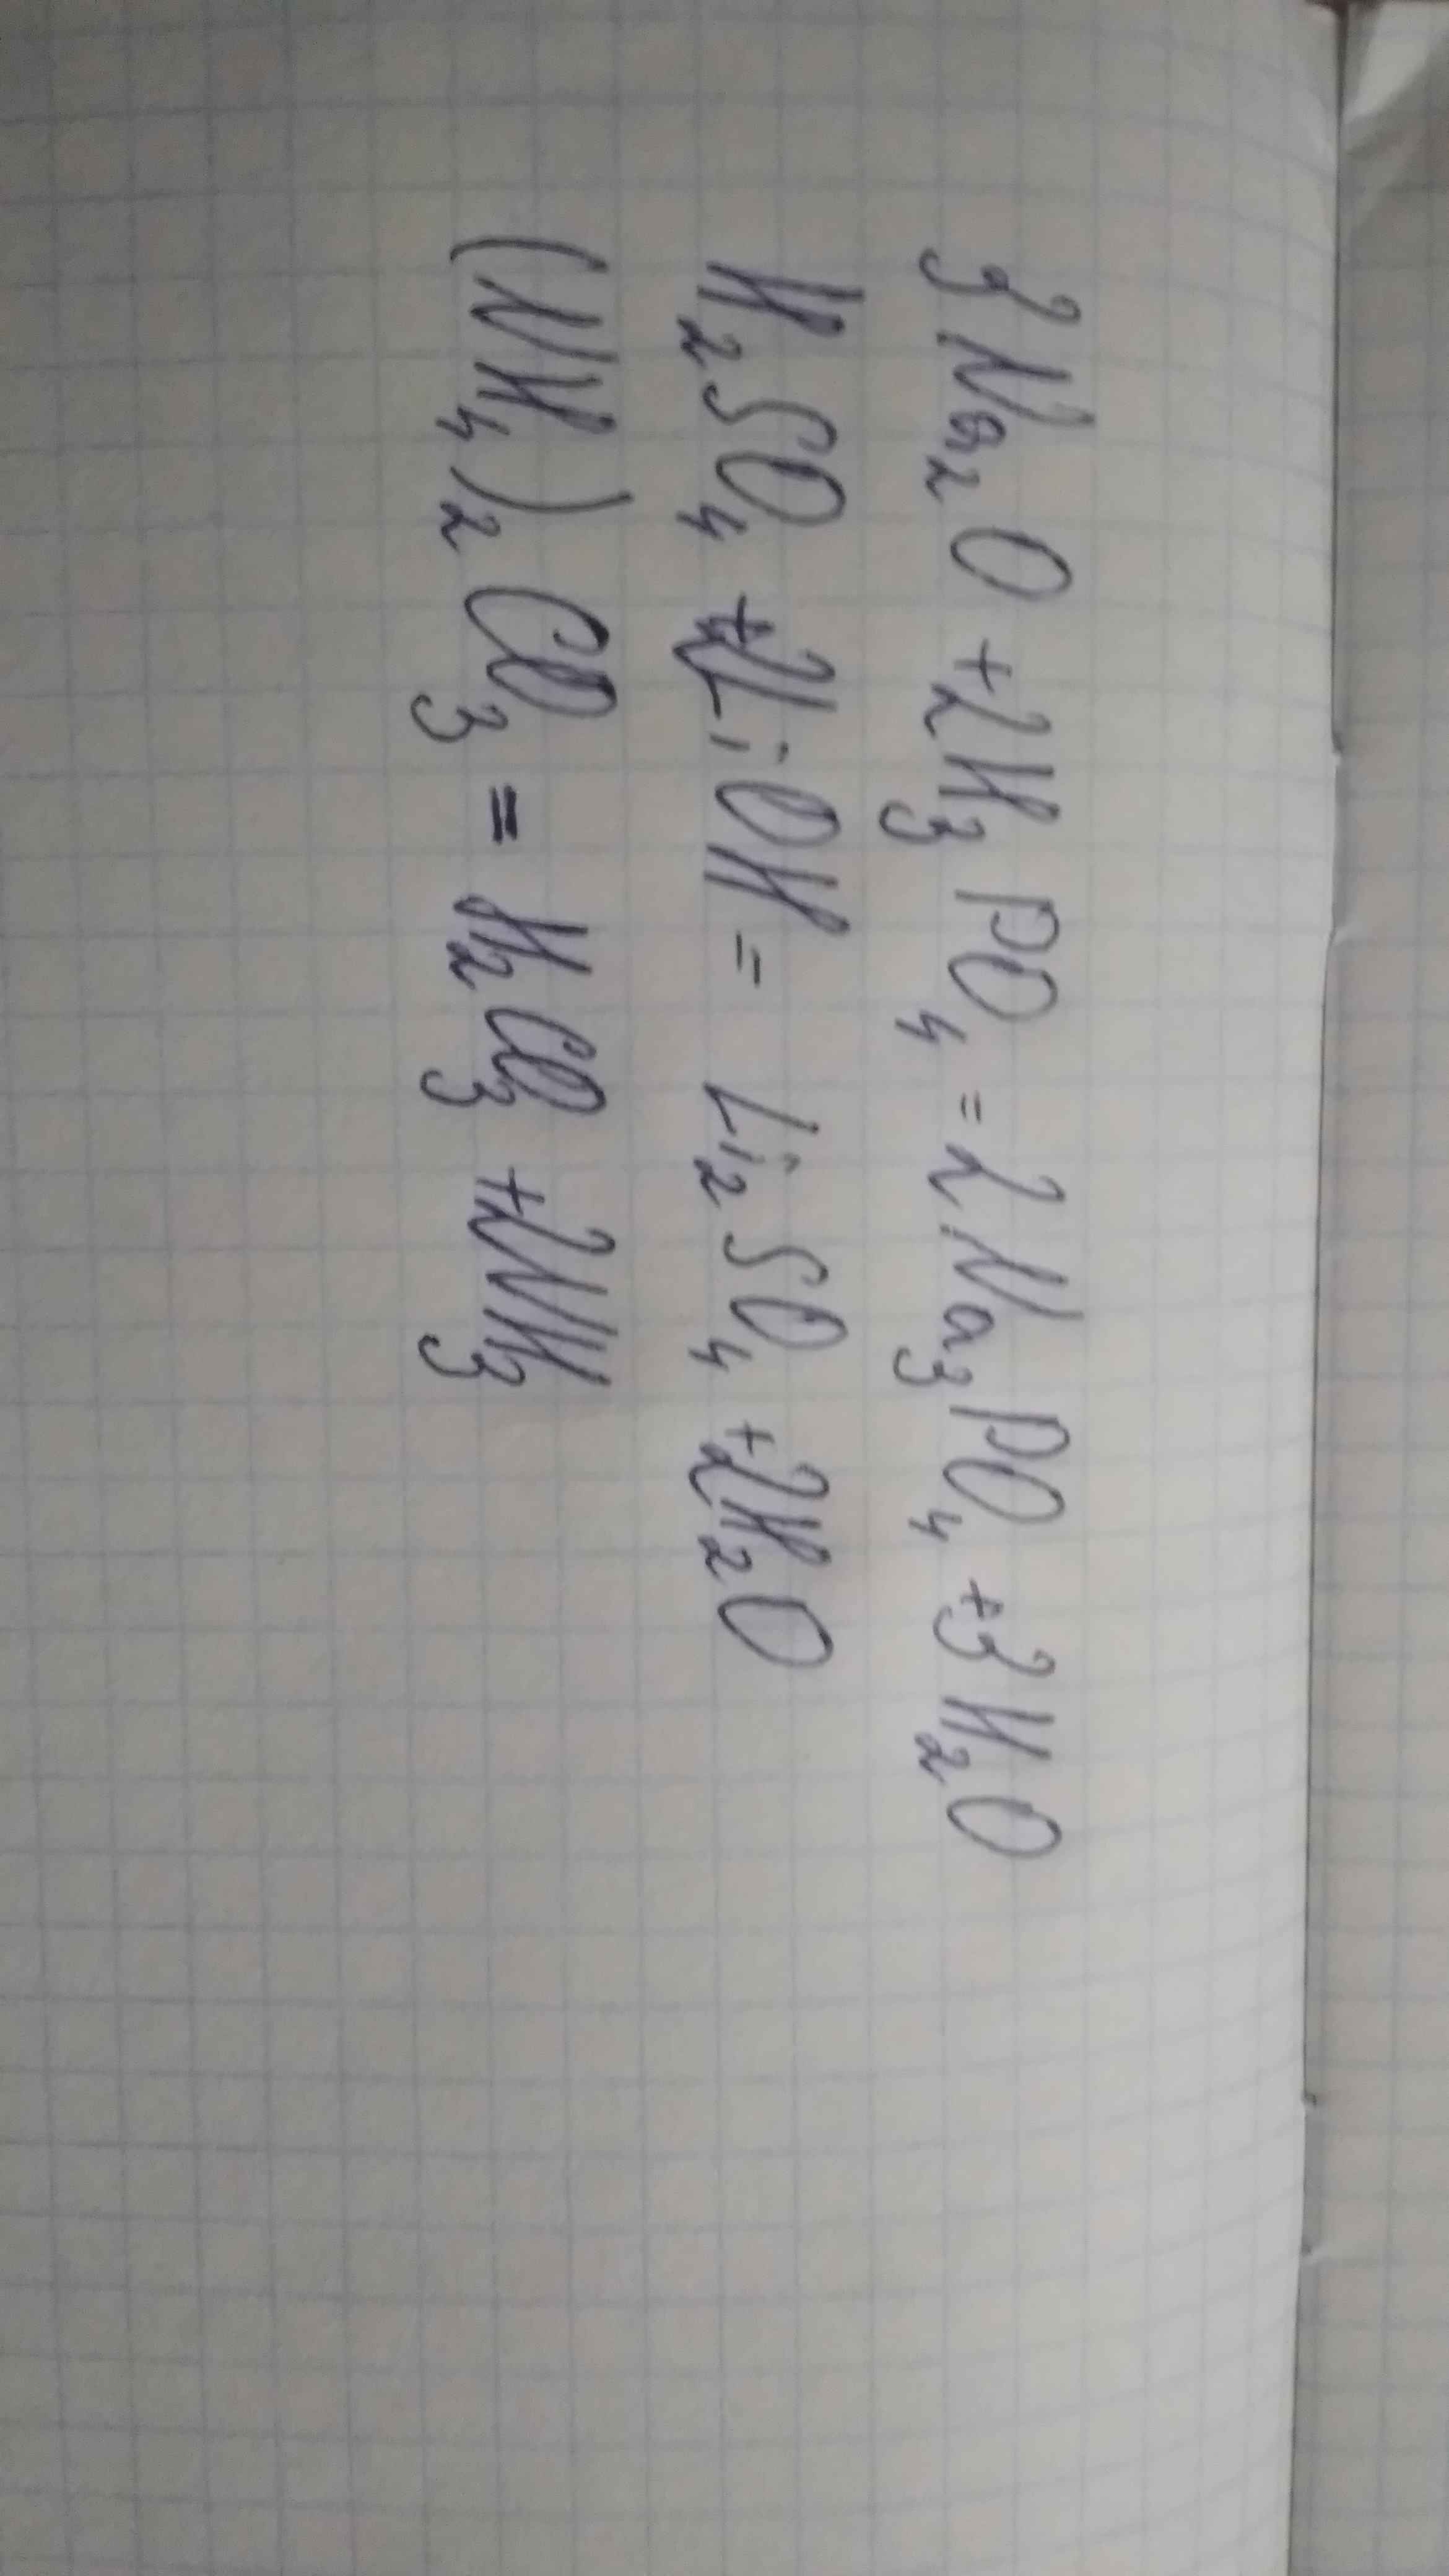 3Na₂O + 2H₃PO₄ = 2Na₃PO₄ + 3H₂O
H₂SO₄ + 2LiOH = Li₂SO₄ + 2H₂O
(NH₄)₂CO₃ = H₂CO₃ + 2NH₃